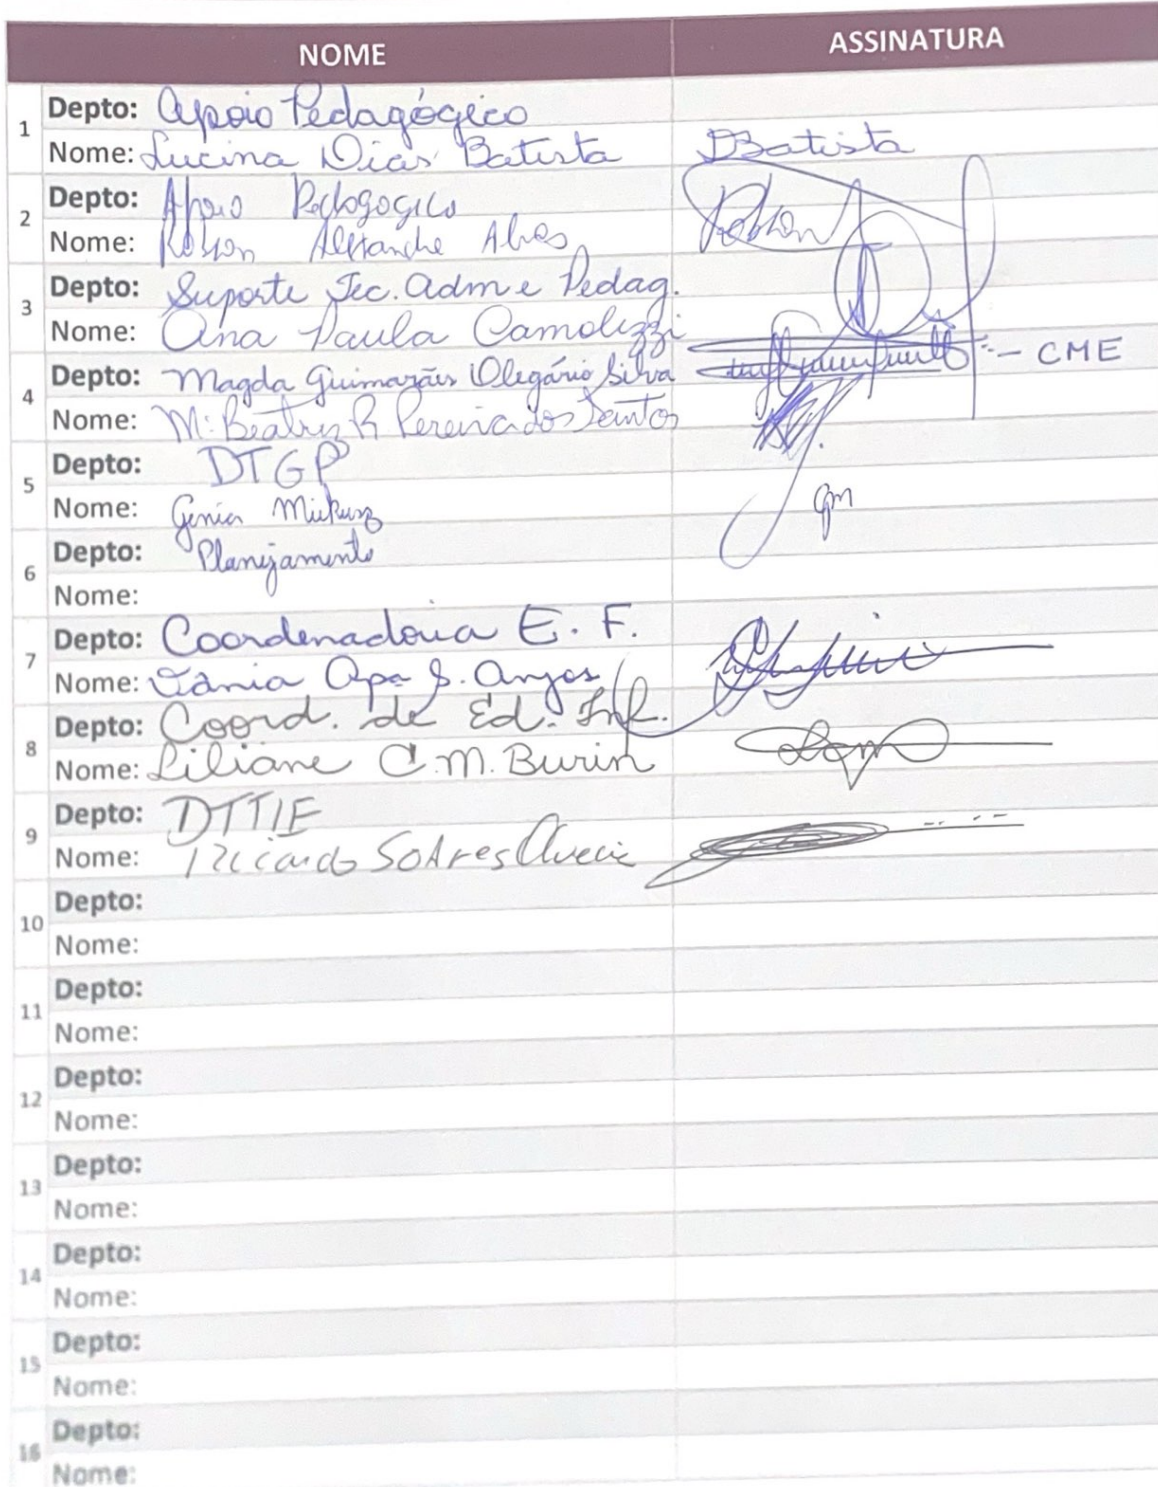 NOME ASSINATURA
1
Depto: Apoio Pedagógico
Nome: Lucina Dias Batista DBatista
2
Depto: Apoio Pedagogico
Nome: Robson Alexandre Alves Robson
3
Depto: Suporte Tec. Adm e Pedag.
Nome: Ana Paula Camolezzi
4
Depto: Magda Guimarães Olegário Silva - CME
Nome: M: Beatriz R Pereira dos Santos
5
Depto: DTGP
Nome: gm
6
Depto: Planejamento
Nome:
7
Depto: Coordenadoria E. F.
Nome: Tânia Apa S. Anjos
8
Depto: Coord. de Ed. Inf.
Nome: Liliane C.M. Burin
9
Depto: DTTIE
Nome: Ricardo Soares
10
Depto:
Nome:
11
Depto:
Nome:
12
Depto:
Nome:
13
Depto:
Nome:
14
Depto:
Nome:
15
Depto:
Nome:
16
Depto:
Nome: